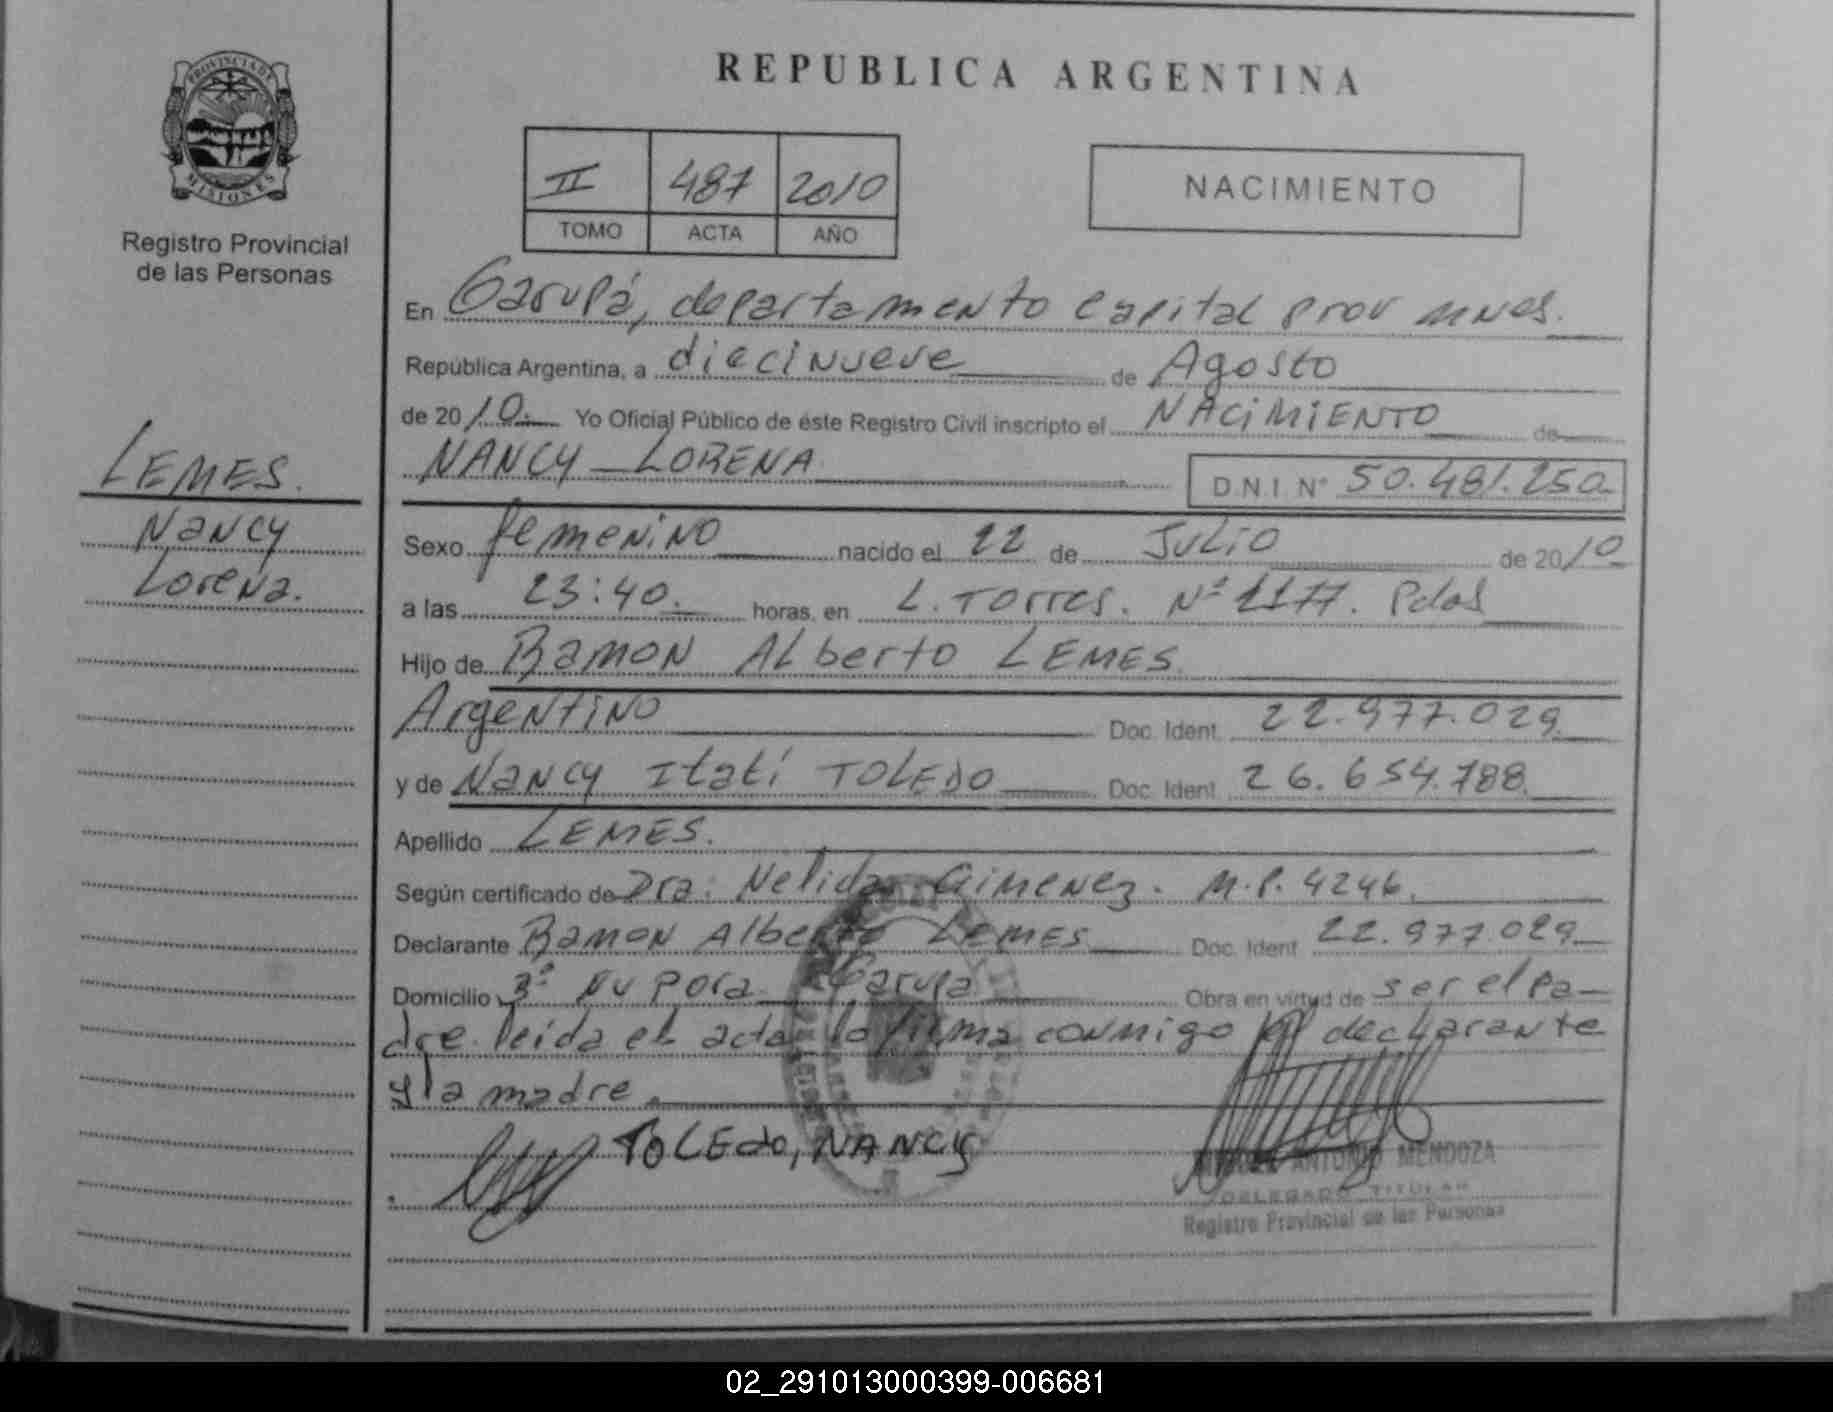 REPUBLICA ARGENTINA
PROVINCIA DE
MISIONES
Registro Provincial
de las Personas
II 487 2010
TOMO ACTA AÑO
NACIMIENTO
En Garupá, departamento Capital prov mnes.
República Argentina, a diecinueve de Agosto
de 2010. Yo Oficial Público de éste Registro Civil inscripto el NACIMIENTO de
NANCY LORENA D.N.I. N° 50.481.250
LEMES.
Nancy
Lorena.
Sexo femenino nacido el 22 de Julio de 2010
a las 23:40. horas, en L. Torres. Nº 1177. Pdas
Hijo de Ramon Alberto LEMES
Argentino Doc. Ident. 22.977.029
y de Nancy Itatí TOLEDO Doc. Ident. 26.654.788
Apellido LEMES.
Según certificado de Dra. Nelida Gimenez. M.P. 4246.
Declarante Ramon Alberto LEMES Doc. Ident. 22.977.029
Domicilio Bº Ñu Pora Garupa Obra en virtud de ser el pa-
dre leida el acta la firma conmigo el declarante
y la madre.
TOLEDO, NANCY
ANTONIO MENDOZA
DELEGADO TITULAR
Registro Provincial de las Personas
02_291013000399-006681